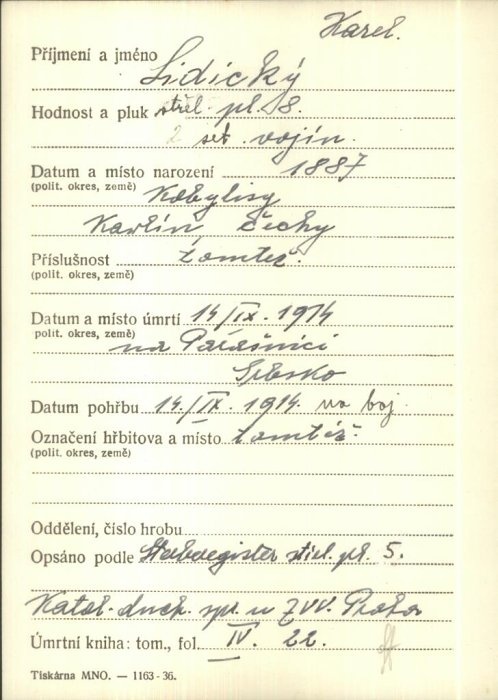 Karel.
Příjmení a jméno Lidický
Hodnost a pluk střel. pl. 8.
2 set. vojín.
Datum a místo narození 1887
(polit. okres, země) Kobylisy
Karlín, Čechy
Příslušnost tamtéž.
(polit. okres, země)
Datum a místo úmrtí 14/IX. 1914
polit. okres, země) na Parašnici
Srbsko
Datum pohřbu 14./IX. 1914. na boj.
Označení hřbitova a místo tamtéž.
(polit. okres, země)
Oddělení, číslo hrobu
Opsáno podle Sterberegister střel. pl. 5.
Katol. duch. spr. u ZVV. Praha
Úmrtní kniha: tom., fol. IV. 22.
Tiskárna MNO. — 1163-36.